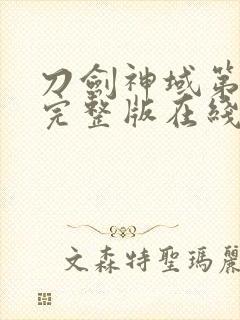 刀劍神域第
完整版在綫
文森特聖瑪麗